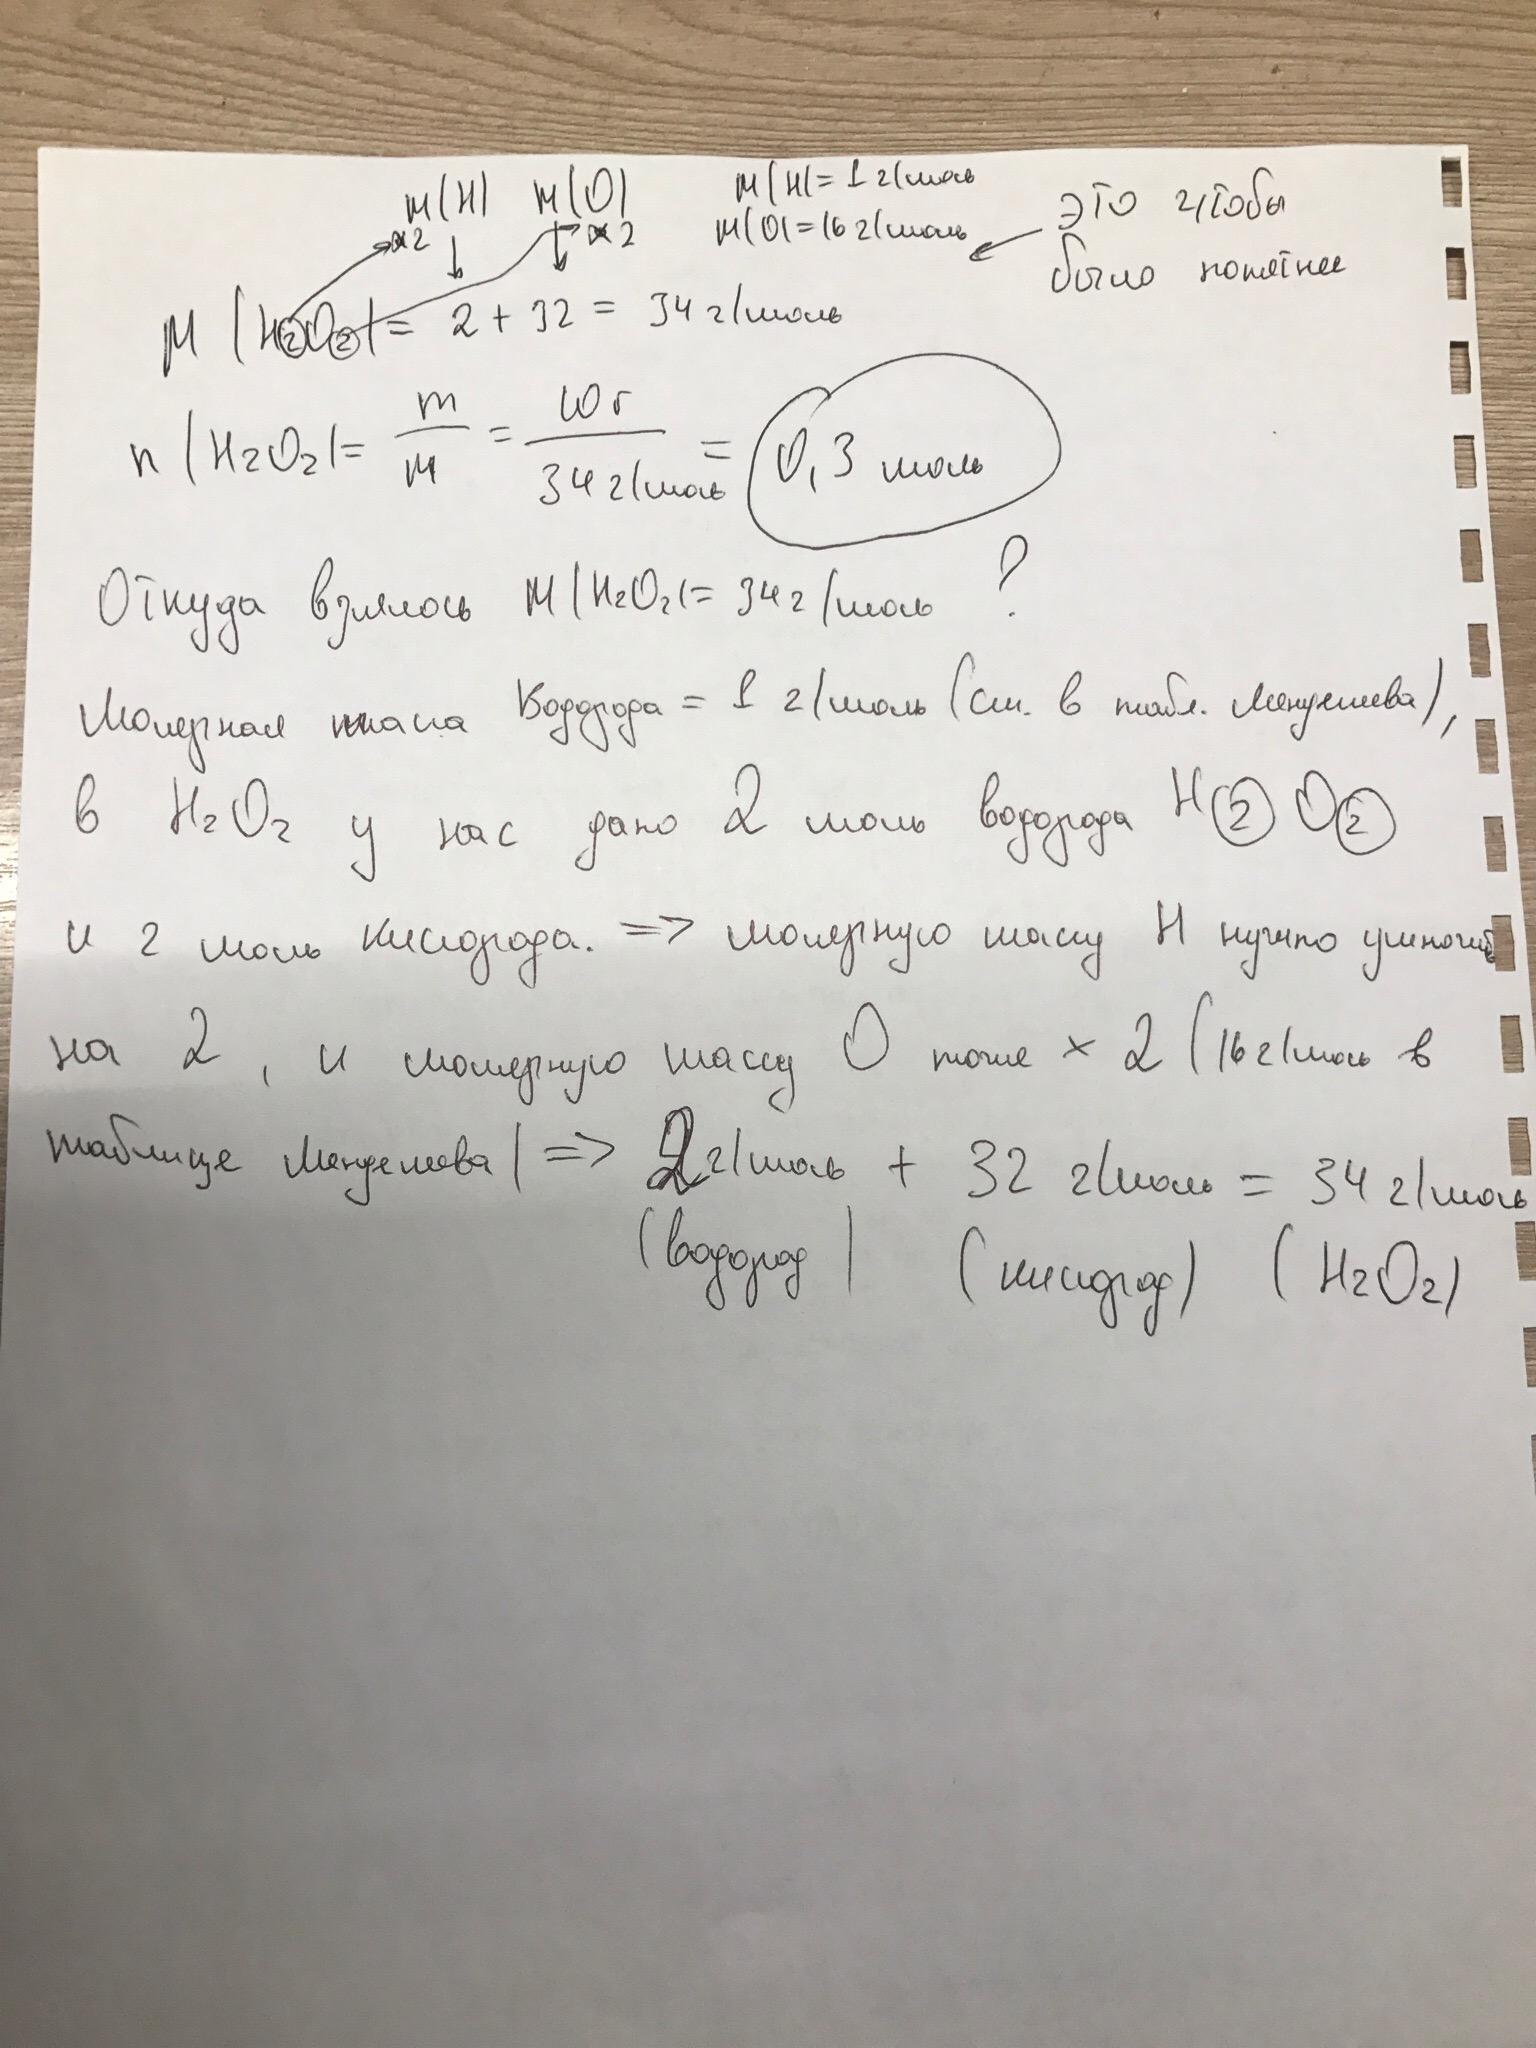 M(H) M(O) M(H)=1 г/моль
×2 ×2 M(O)=16 г/моль это чтобы было понятнее
M(H₂O₂)= 2+32 = 34 г/моль
n(H₂O₂)= m/M = 10г/34 г/моль = 0,3 моль
Откуда взялось M(H₂O₂)= 34 г/моль ?
Молярная масса Водорода = 1 г/моль (см. в табл. Менделеева),
в H₂O₂ у нас дано 2 моль водорода H₂O₂
и 2 моль кислорода. => молярную массу H нужно умножить
на 2, и молярную массу O тоже × 2 (16 г/моль в
таблице Менделеева) => 2 г/моль + 32 г/моль = 34 г/моль
(водород) (кислород) (H₂O₂)